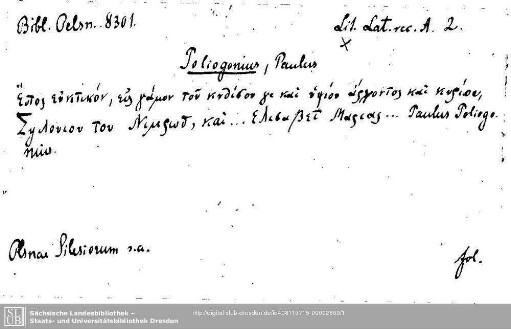 Bibl. Oelsn. 8301.
Lit. Lat. rec. A. 2.
x
Poliogonius, Paulus
Ἔπος εὐκτικόν, εἰς γάμον τοῦ κυδίσου γε καὶ ὑψίου ἄρχοντος καὶ κυρίου,
Συλουίου του Νιμρωδ, καὶ ... Ελισαβετ Μαριας ... Paulus Poliogo-
nius.
Olsnae Silesiorum s.a.
fol.
SLUB
Sächsische Landesbibliothek –
Staats- und Universitätsbibliothek Dresden